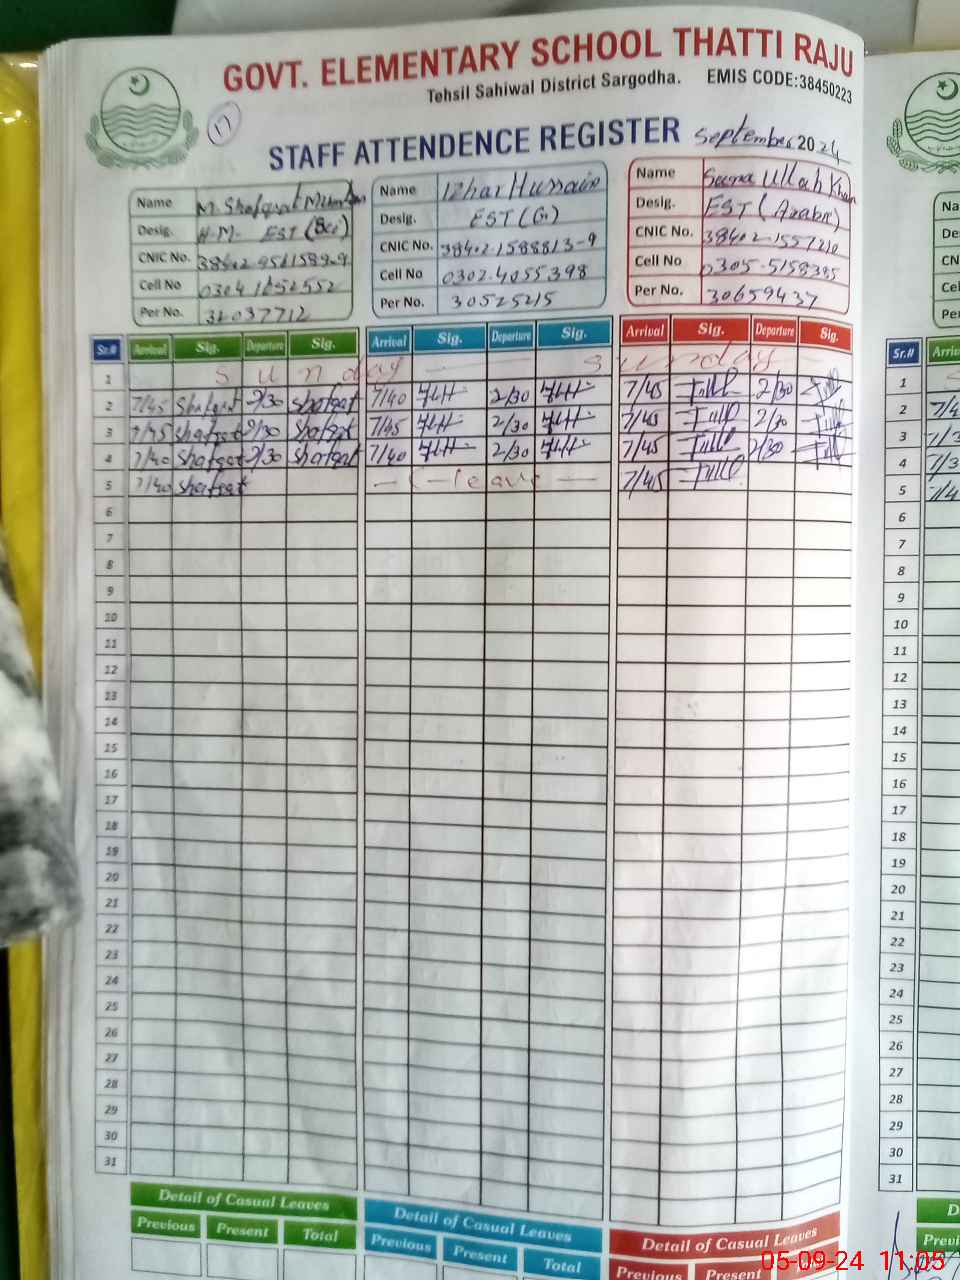 GOVT. ELEMENTARY SCHOOL THATTI RAJU
Tehsil Sahiwal District Sargodha. EMIS CODE:38450223
17
STAFF ATTENDENCE REGISTER September 2024
Name M. Shafqat
Desig. H.M. EST (Sci)
CNIC No.
Cell No
Per No. 32037712
Name Izhar Hussain
Desig. EST (G)
CNIC No. 38402-1588813-9
Cell No 0302-4055398
Per No. 30525215
Name Ullah Khan
Desig. EST (Arabic)
CNIC No.
Cell No 0305-5158385
Per No. 30659437
Sr.# Arrival Sig. Departure Sig. Arrival Sig. Departure Sig. Arrival Sig. Departure Sig.
1 Sunday Sunday
2 7/45 Shafqat 2/30 Shafqat 7/40 2/30 7/45 2/30
3 7/45 Shafqat 2/30 Shafqat 7/45 2/30 7/45 2/30
4 7/40 Shafqat 2/30 Shafqat 7/40 2/30 7/45 2/30
5 7/40 Shafqat C-leave 7/45
6
7
8
9
10
11
12
13
14
15
16
17
18
19
20
21
22
23
24
25
26
27
28
29
30
31
Detail of Casual Leaves
Previous Present Total
Detail of Casual Leaves
Previous Present Total
Detail of Casual Leaves
Previous Present
Na
De
CN
Cel
Per
Sr.# Arriv
1
2
3
4
5
6
7
8
9
10
11
12
13
14
15
16
17
18
19
20
21
22
23
24
25
26
27
28
29
30
31
D
Previ
05-09-24 11:05